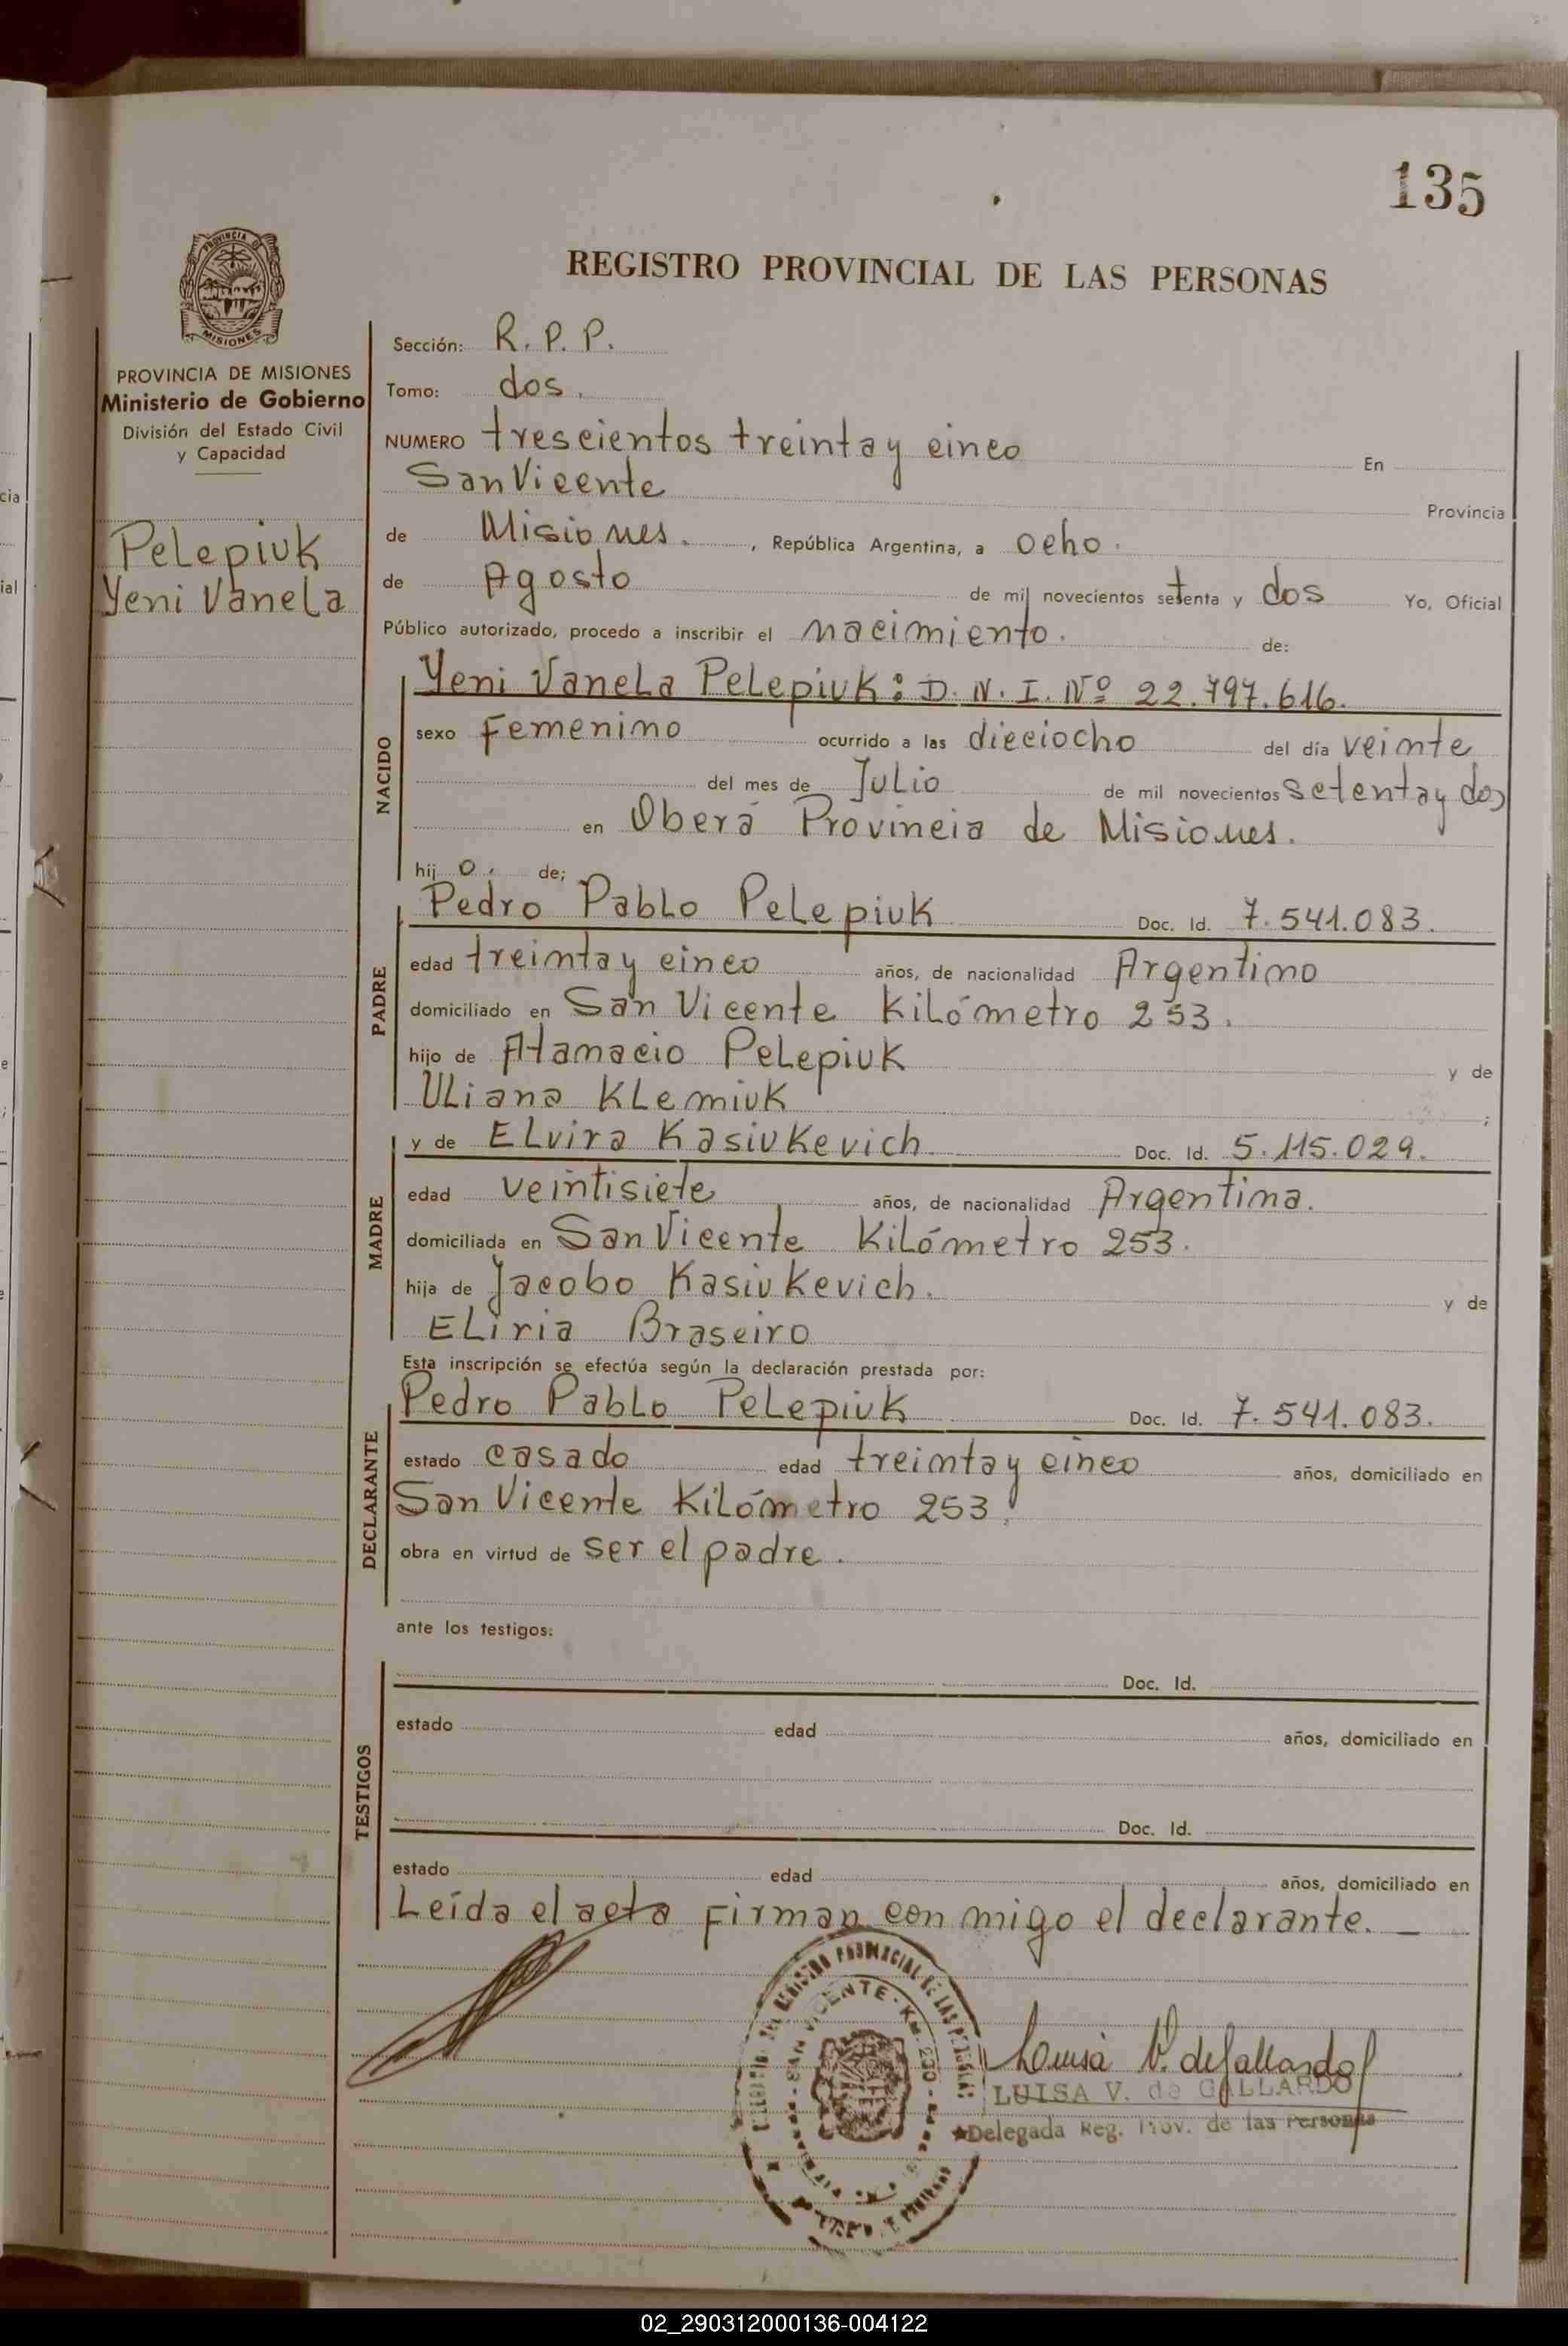 135
REGISTRO PROVINCIAL DE LAS PERSONAS
PROVINCIA DE MISIONES
PROVINCIA DE MISIONES
Ministerio de Gobierno
División del Estado Civil
y Capacidad
Pelepiuk
Yeni Vanela
Sección: R. P. P.
Tomo: dos.
NUMERO trescientos treinta y cinco En
San Vicente Provincia
de Misiones. , República Argentina, a ocho.
de Agosto de mil novecientos setenta y dos Yo, Oficial
Público autorizado, procedo a inscribir el nacimiento. de:
NACIDO
Yeni Vanela Pelepiuk: D. N. I. Nº 22.797.616.
sexo Femenino ocurrido a las dieciocho del día veinte
del mes de Julio de mil novecientos setenta y dos
en Oberá Provincia de Misiones.
hij o. de;
PADRE
Pedro Pablo Pelepiuk Doc. Id. 7.541.083.
edad treinta y cinco años, de nacionalidad Argentino
domiciliado en San Vicente Kilómetro 253.
hijo de Atanacio Pelepiuk y de
Uliana Klemiuk ;
MADRE
y de Elvira Kasiukevich Doc. Id. 5.115.029.
edad veintisiete años, de nacionalidad Argentina.
domiciliada en San Vicente Kilómetro 253.
hija de Jacobo Kasiukevich. y de
Eliria Braseiro
Esta inscripción se efectúa según la declaración prestada por:
DECLARANTE
Pedro Pablo Pelepiuk Doc. Id. 7.541.083.
estado casado edad treinta y cinco años, domiciliado en
San Vicente Kilómetro 253.
obra en virtud de ser el padre.
ante los testigos:
TESTIGOS
Doc. Id.
estado edad años, domiciliado en
Doc. Id.
estado edad años, domiciliado en
Leída el acta firman con migo el declarante.
REGISTRO PROVINCIAL DE LAS PERSONAS
SAN VICENTE - Km.
Luisa V. de Gallardo
LUISA V. de GALLARDO
Delegada Reg. Prov. de las Personas
02_290312000136-004122